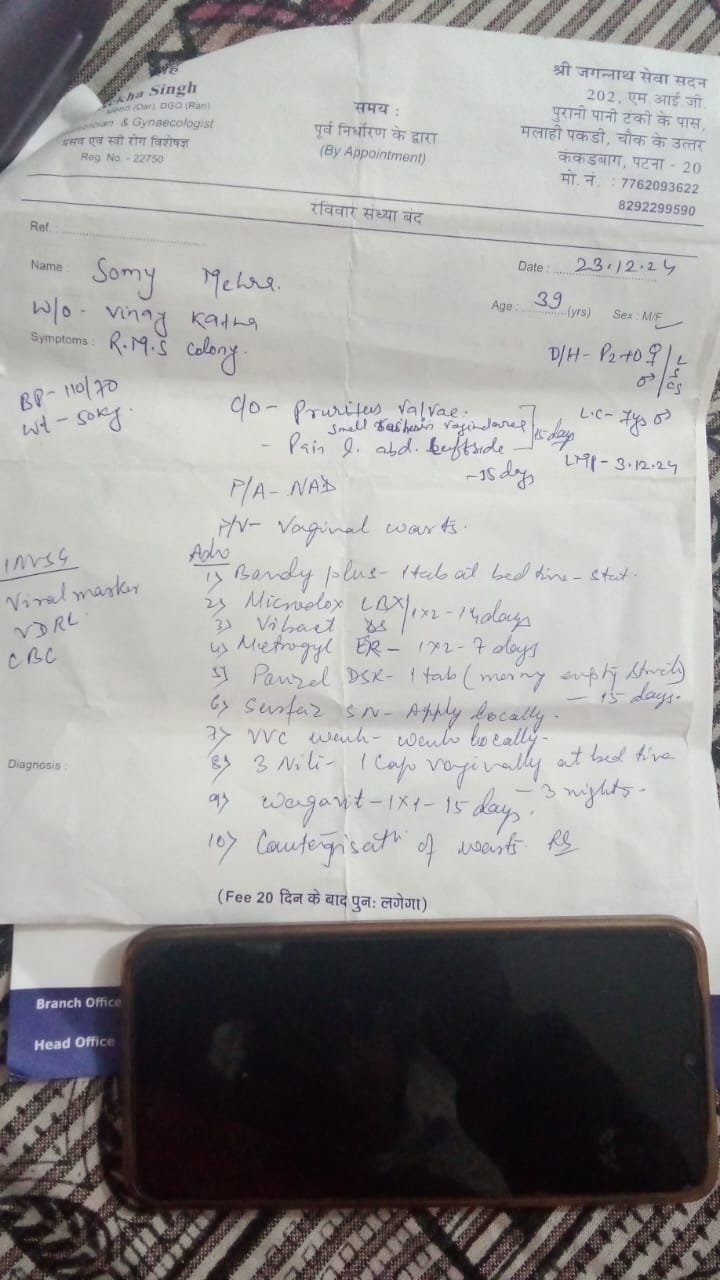 kha Singh
DGO (Ran)
& Gynaecologist
प्रसव एवं स्त्री रोग विशेषज्ञ
Reg. No. - 22750
समय :
पूर्व निर्धारण के द्वारा
(By Appointment)
श्री जगन्नाथ सेवा सदन
202, एम.आई.जी.
पुरानी पानी टंकी के पास,
मलाही पकडी, चौक के उत्तर
कंकड़बाग, पटना - 20
मो. नं. : 7762093622
8292299590
रविवार संध्या बंद
Ref. :
Name : Somy
Date : 23.12.24
W/o - Vinay
Age : 39 (yrs) Sex : M/F
Symptoms : R.M.S colony.
BP - 110/70
Wt - 50kg.
C/o - Pruritus
small
15 days
L.C - 7ys ♂
- Pain abd.
- 15 days
LMP - 3.12.24
P/A - NAD
P/V - Vaginal warts.
INVSG
Viral marker
VDRL
CBC
Adv
1) Bandy plus - 1 tab at bed time - stat.
2) Microdox LBX 1x2 - 14 days
3) Vibact DS
4) Metrogyl ER - 1x2 - 7 days
5) Panzel DSR - 1 tab (empty
- 15 days.
6) Surfaz SN - Apply locally.
7) VVC wash - locally -
8) 3 Niti - 1 Cap vaginally at bed time
- 3 nights.
9) - 1x1 - 15 days.
10) of warts.
Diagnosis :
(Fee 20 दिन के बाद पुनः लगेगा)
Branch Office
Head Office